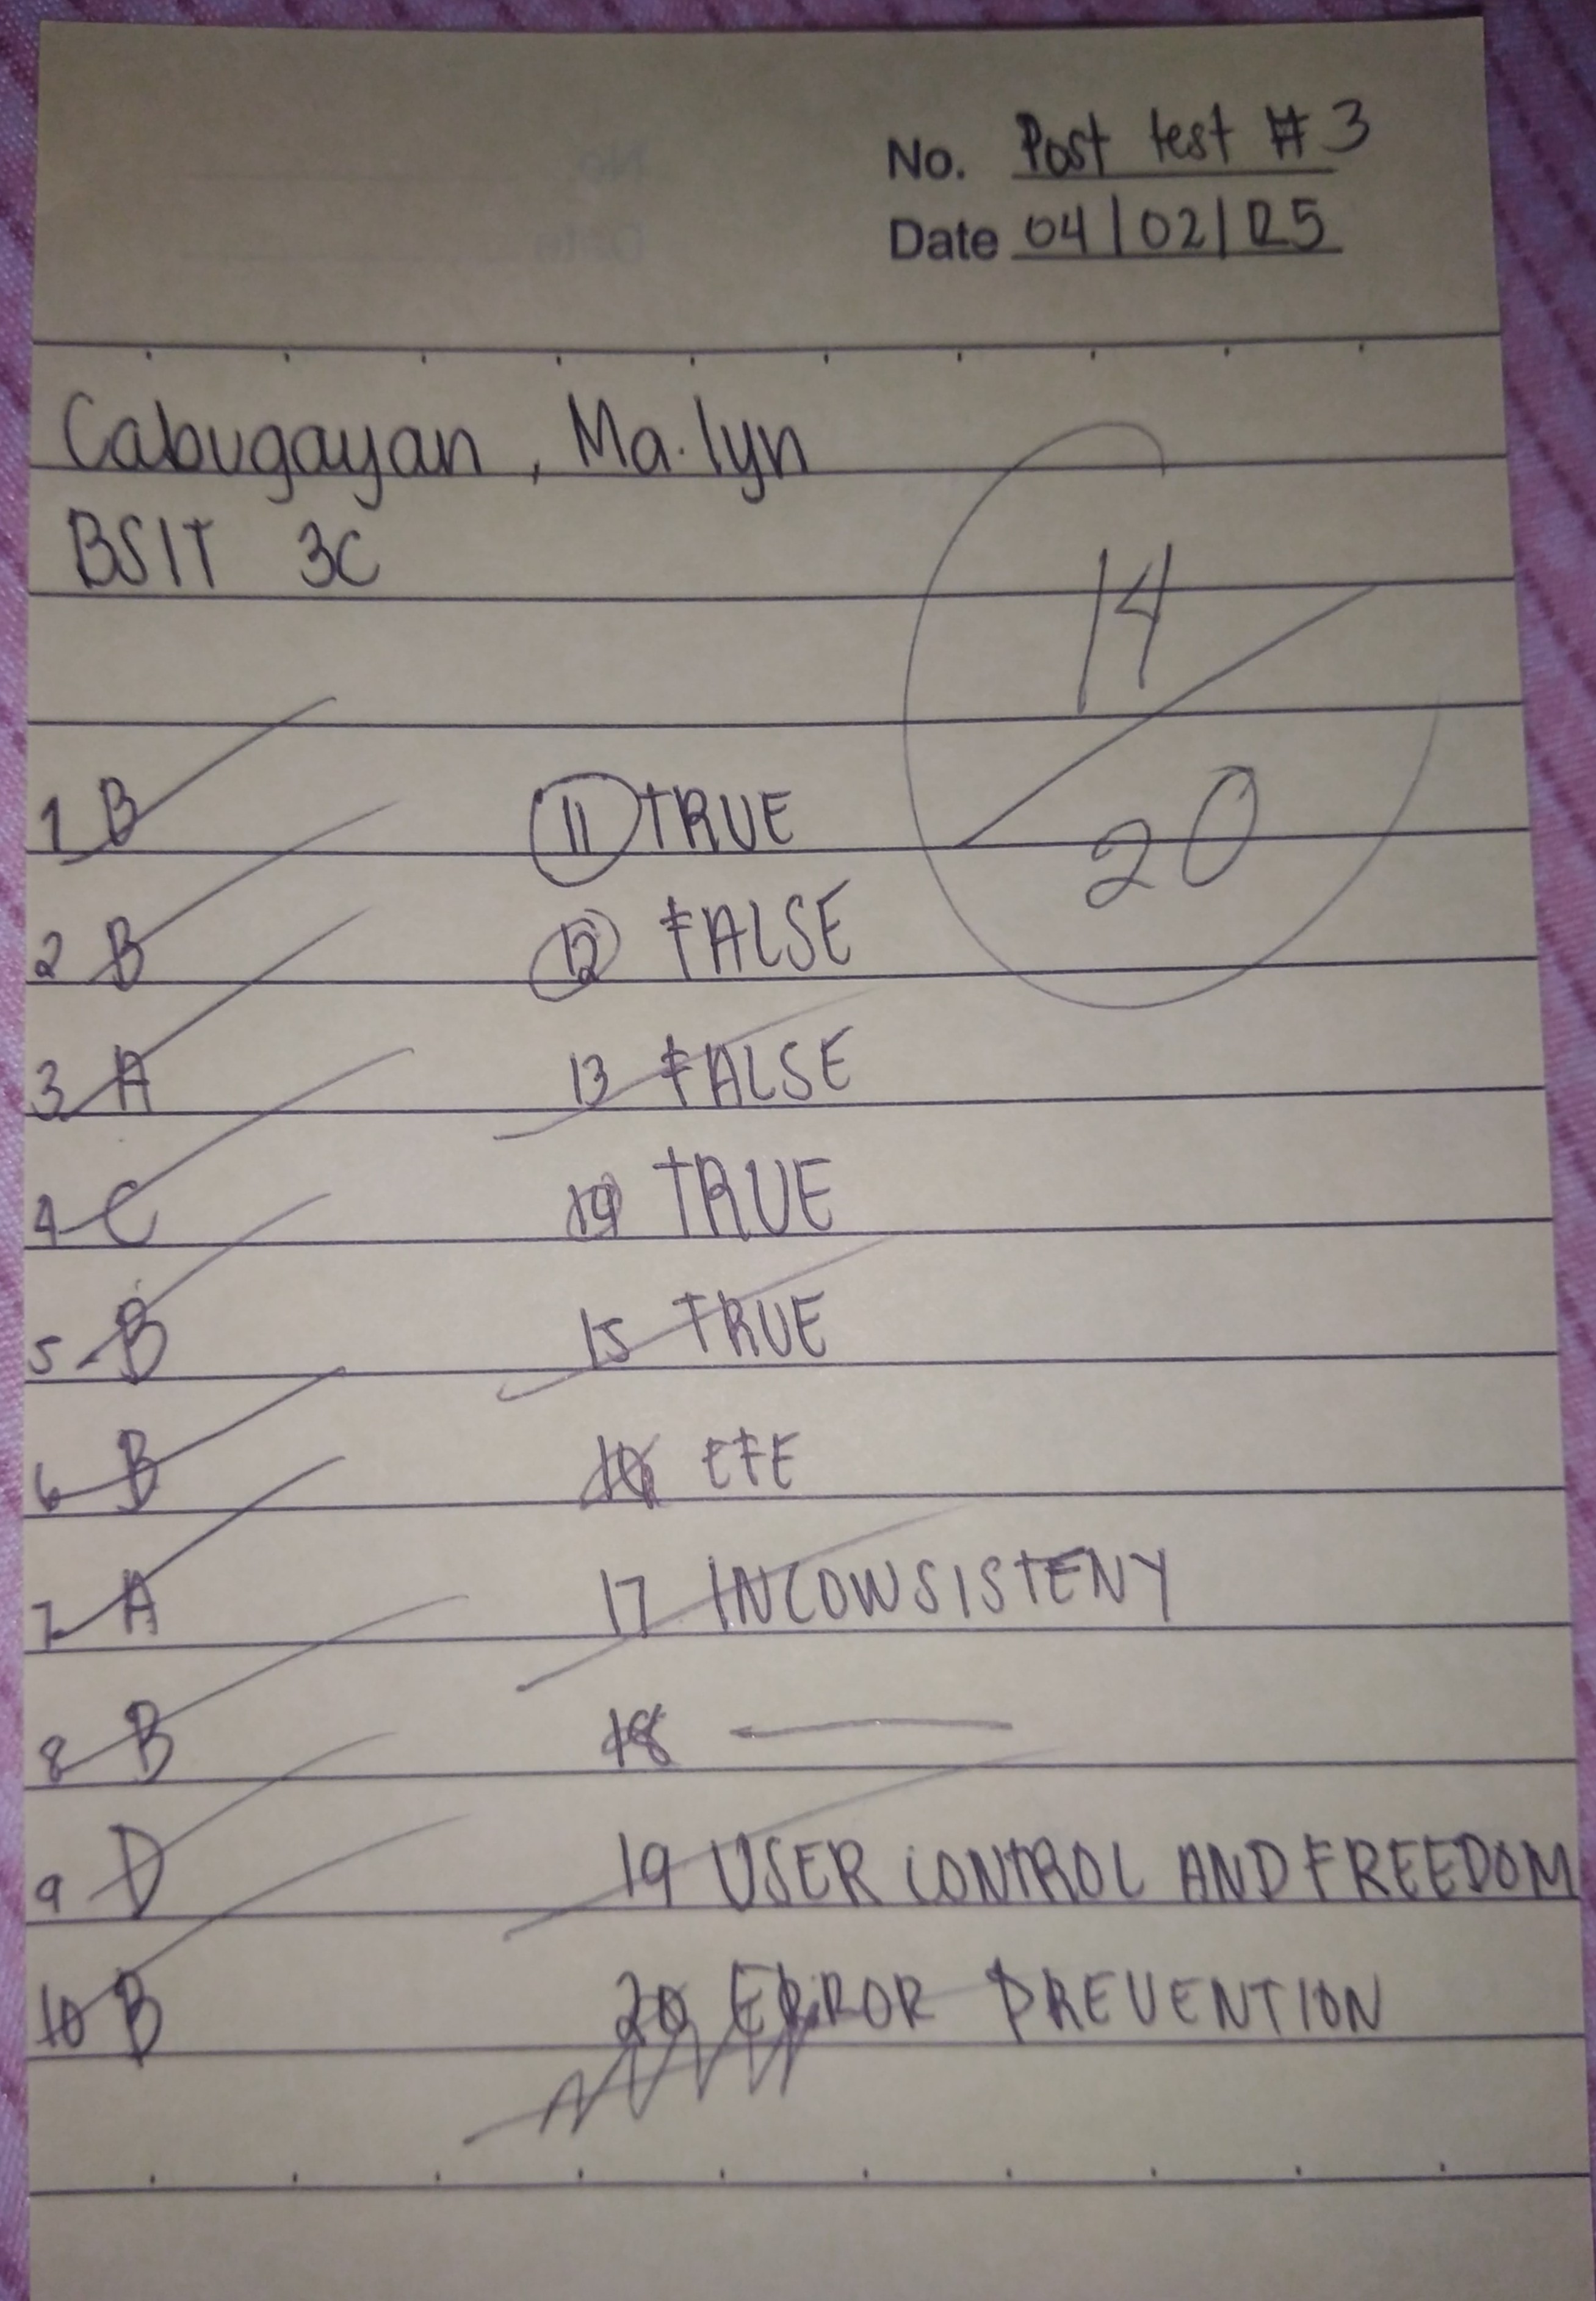 No. Post test #3
Date 04/02/25
Cabugayan, Ma.lyn
BSIT 3C
14
20
1 B
2 B
3 A
4 C
5 B
6 B
7 A
8 B
9 D
10 B
11 TRUE
12 FALSE
13 FALSE
14 TRUE
15 TRUE
16 EFE
17 INCONSISTENY
18 —
19 USER CONTROL AND FREEDOM
20 ERROR PREVENTION